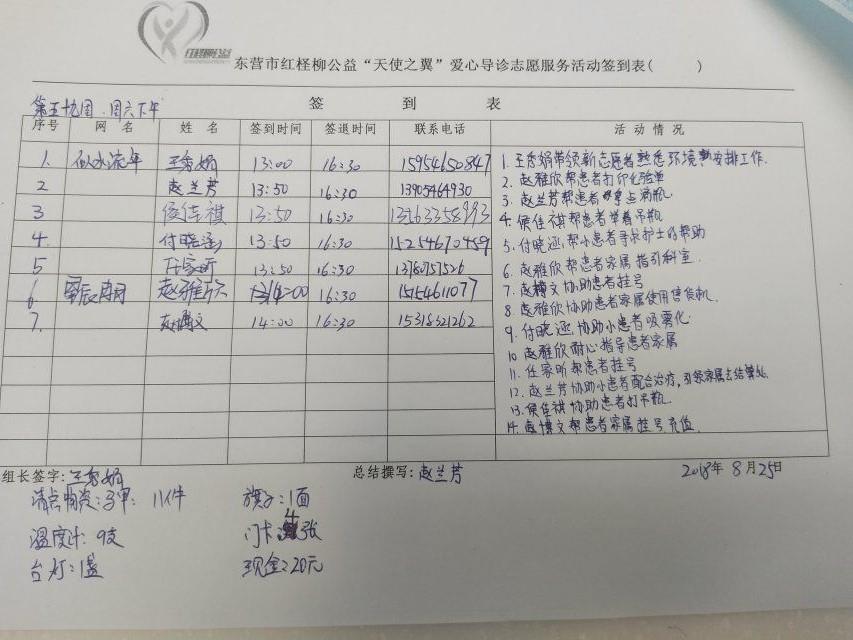 红柽柳公益
东营市红柽柳公益“天使之翼”爱心导诊志愿服务活动签到表( )
第五十九周.周六下午
签 到 表
序号 网 名 姓 名 签到时间 签退时间 联系电话 活 动 情 况
1. 似水流年 王秀娟 13:00 16:30 15954650847
2 赵兰芳 13:50 16:30 13905464930
3 侯佳祺 13:50 16:30
4. 付晓涵 13:50 16:30 15254670459
5 任家昕 13:50 16:30
6 赵雅欣 14:00 16:30 15154611077
7. 赵博文 14:00 16:30 15318321262
1. 王秀娟带领新志愿者熟悉环境安排工作.
2. 赵雅欣帮患者打印化验单
3. 赵兰芳帮患者拿点滴瓶.
4. 侯佳祺帮患者举着吊瓶
5. 付晓涵,帮小患者寻求护士的帮助
6. 赵雅欣帮患者家属指引科室.
7. 赵博文协助患者挂号
8. 赵雅欣协助患者家属使用售货机.
9. 付晓涵协助小患者吸雾化.
10 赵雅欣耐心指导患者家属
11. 任家昕帮患者挂号
12. 赵兰芳协助小患者配合治疗,引领家属去结算处.
13. 侯佳祺协助患者打吊瓶.
14. 赵博文帮患者家属挂号充值.
组长签字:王秀娟 总结撰写:赵兰芳 2018年8月25日
清点物资:马甲: 11件 旗子:1面
温度计:9支 门卡 4张
台灯:1盏 现金:20元